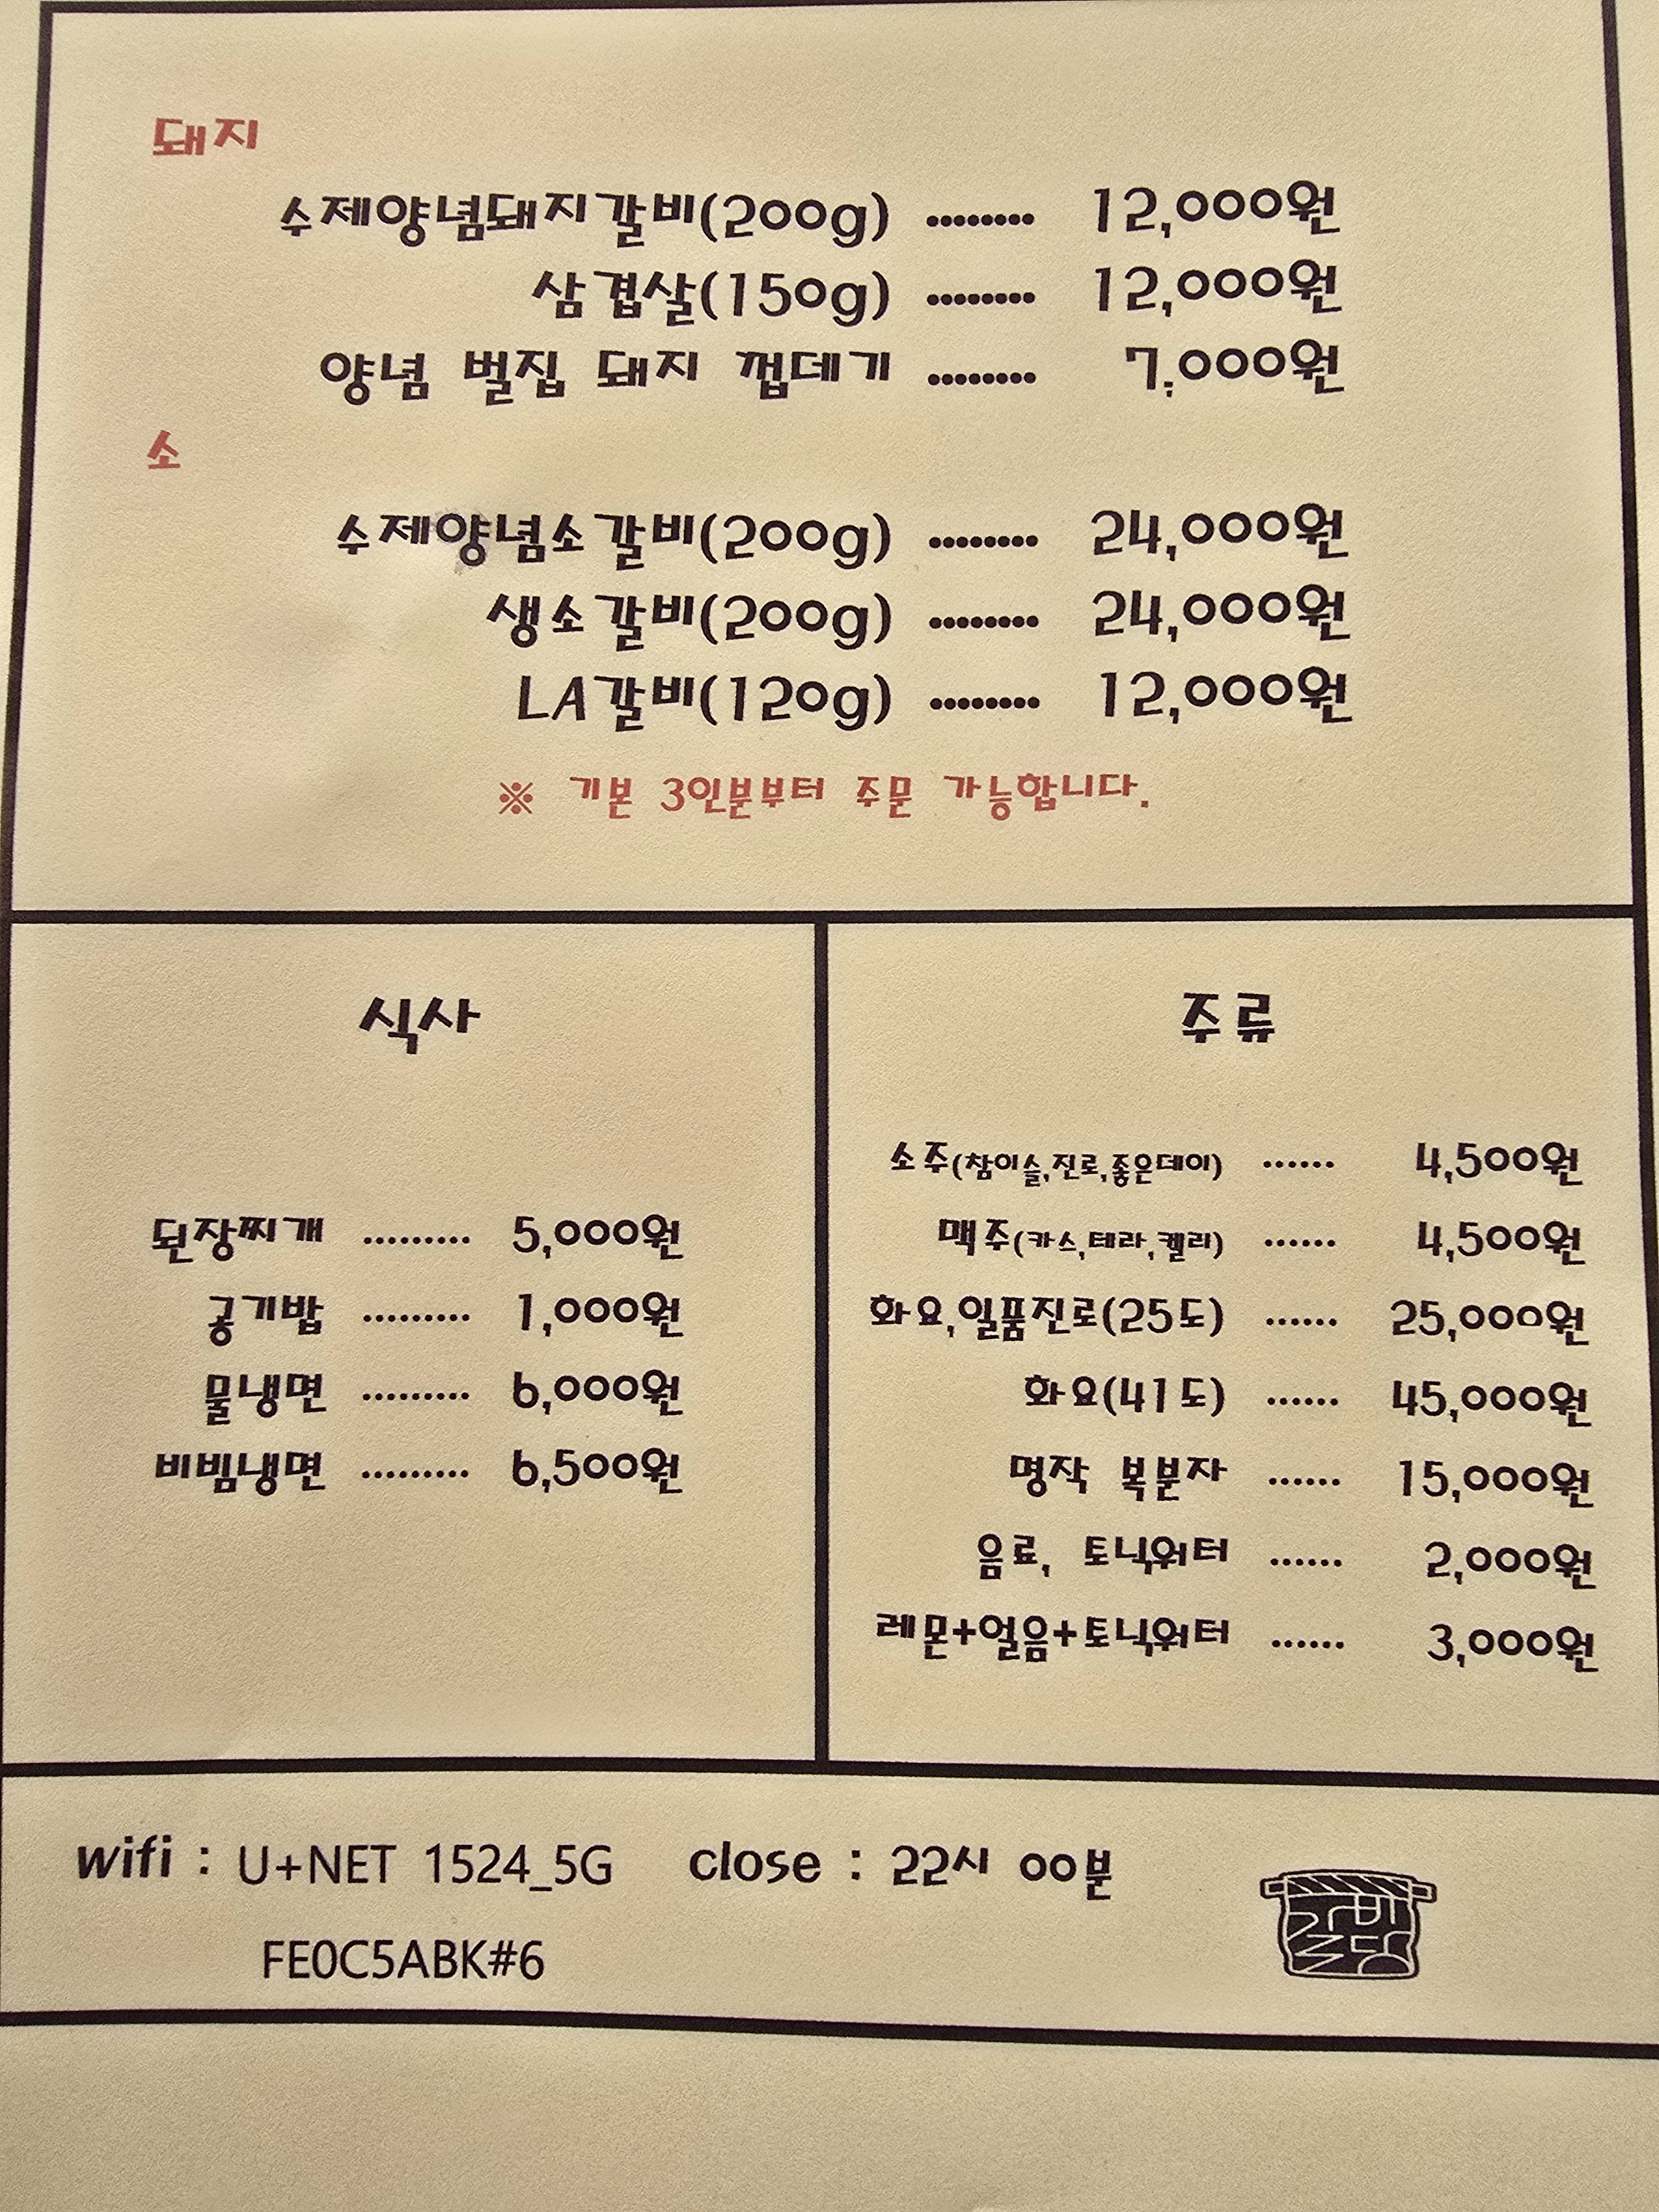 돼지
수제양념돼지갈비(200g) ········ 12,000원
삼겹살(150g) ········ 12,000원
양념 벌집 돼지 껍데기 ········ 7,000원
소
수제양념소갈비(200g) ········ 24,000원
생소갈비(200g) ········ 24,000원
LA갈비(120g) ········ 12,000원
※ 기본 3인분부터 주문 가능합니다.
식사
된장찌개 ········· 5,000원
공기밥 ········· 1,000원
물냉면 ········· 6,000원
비빔냉면 ········· 6,500원
주류
소주(참이슬,진로,좋은데이) ······ 4,500원
맥주(카스,테라,켈리) ······ 4,500원
화요,일품진로(25도) ······ 25,000원
화요(41도) ······ 45,000원
명작 복분자 ······ 15,000원
음료, 토닉워터 ······ 2,000원
레몬+얼음+토닉워터 ······ 3,000원
wifi : U+NET 1524_5G close : 22시 00분
FE0C5ABK#6